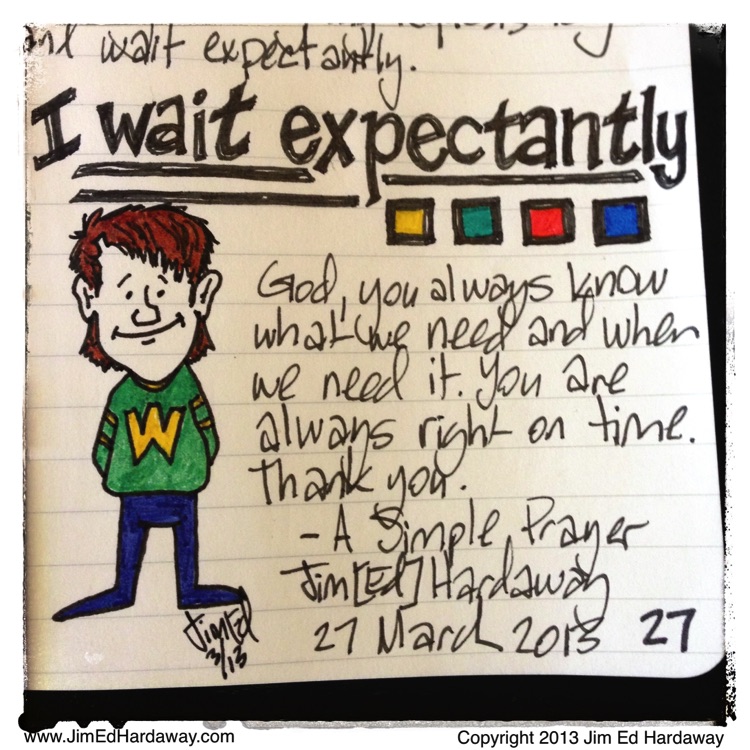 and wait expectantly.
I wait expectantly
W
God, you always know
what we need and when
we need it. You are
always right on time.
Thank you.
- A Simple Prayer
Jim [Ed] Hardaway
27 March 2013 27
JimEd
3/13
www.JimEdHardaway.com Copyright 2013 Jim Ed Hardaway